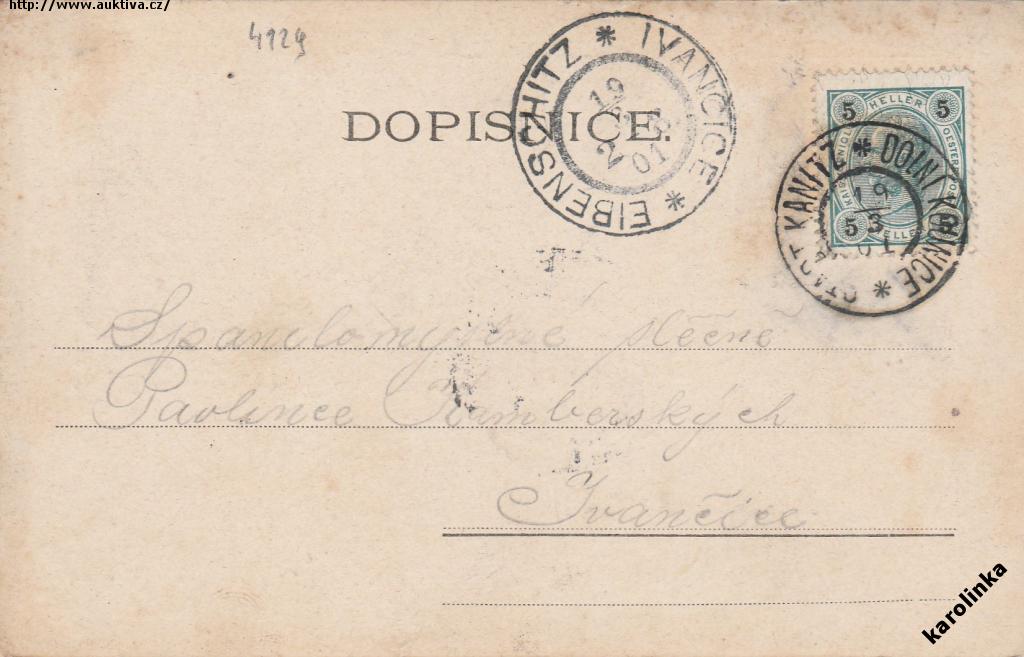 http://www.auktiva.cz/
4129
DOPISNICE.
EIBENSCHITZ * IVANČICE *
19
2
01
5 HELLER 5
5 HELLER 5
KANITZ * DOLNÍ KOUNICE *
19
3
01
Spanilomyslné slečně
Pavlince
Ivančice
karolinka